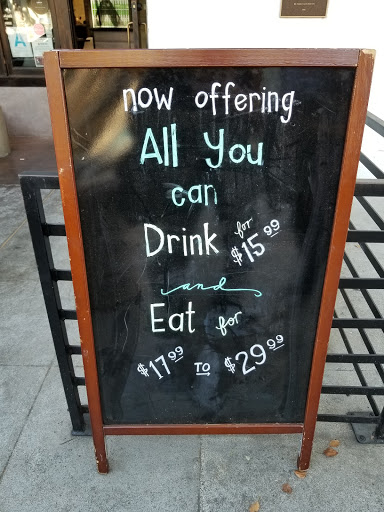 now offering
All You
can
Drink for $15.99
and
Eat for
$17.99 TO $29.99
A